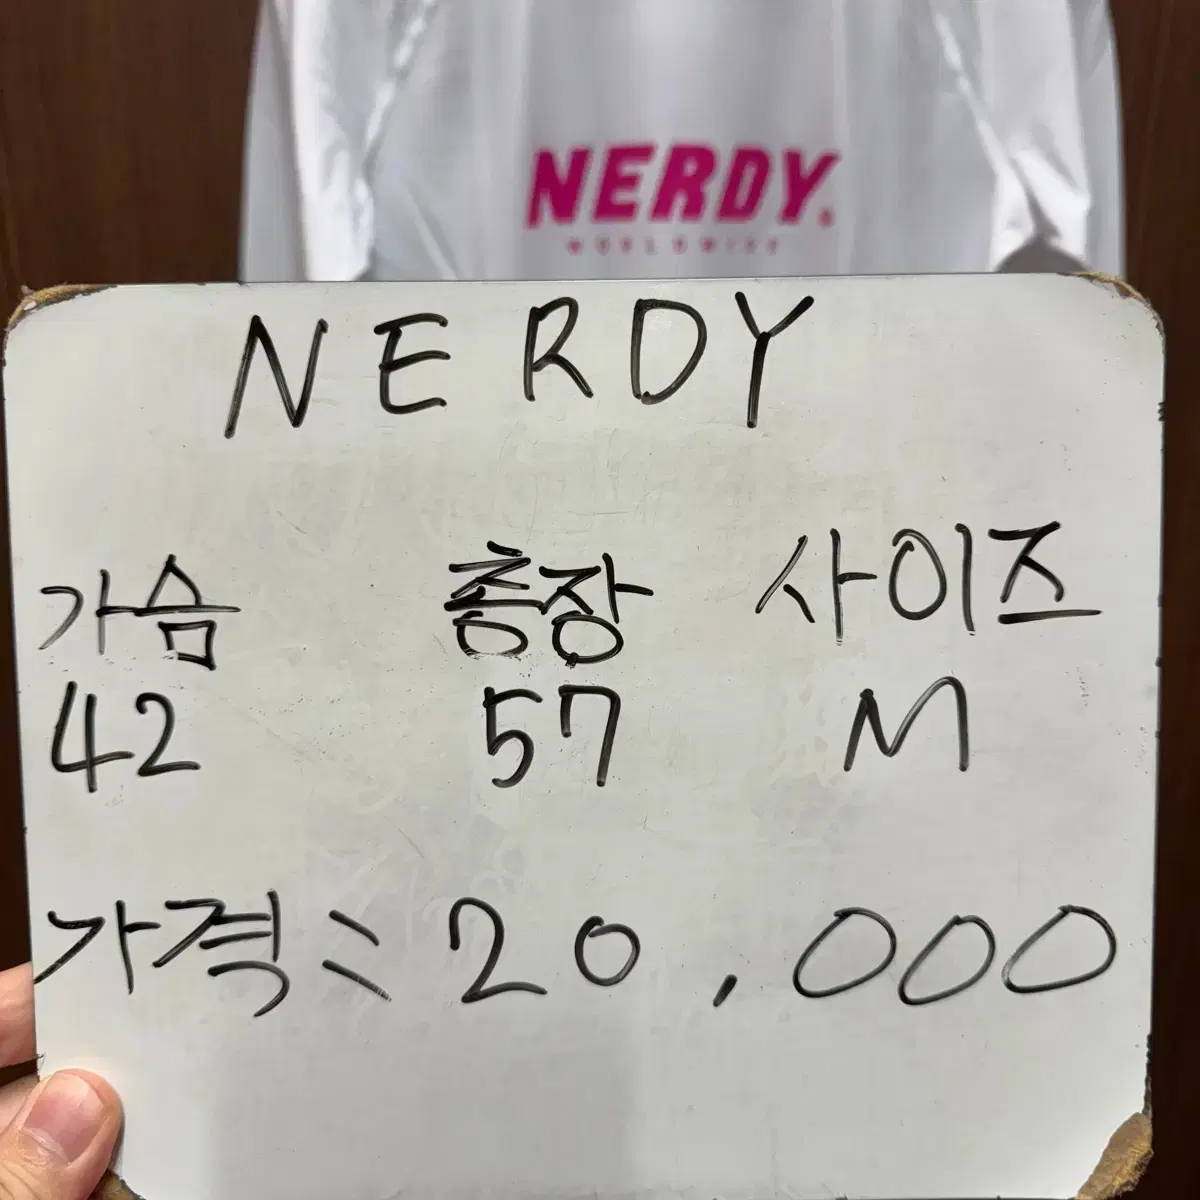 NERDY.
WORLDWIDE
NERDY
가슴 총장 사이즈
42 57 M
가격 : 20,000